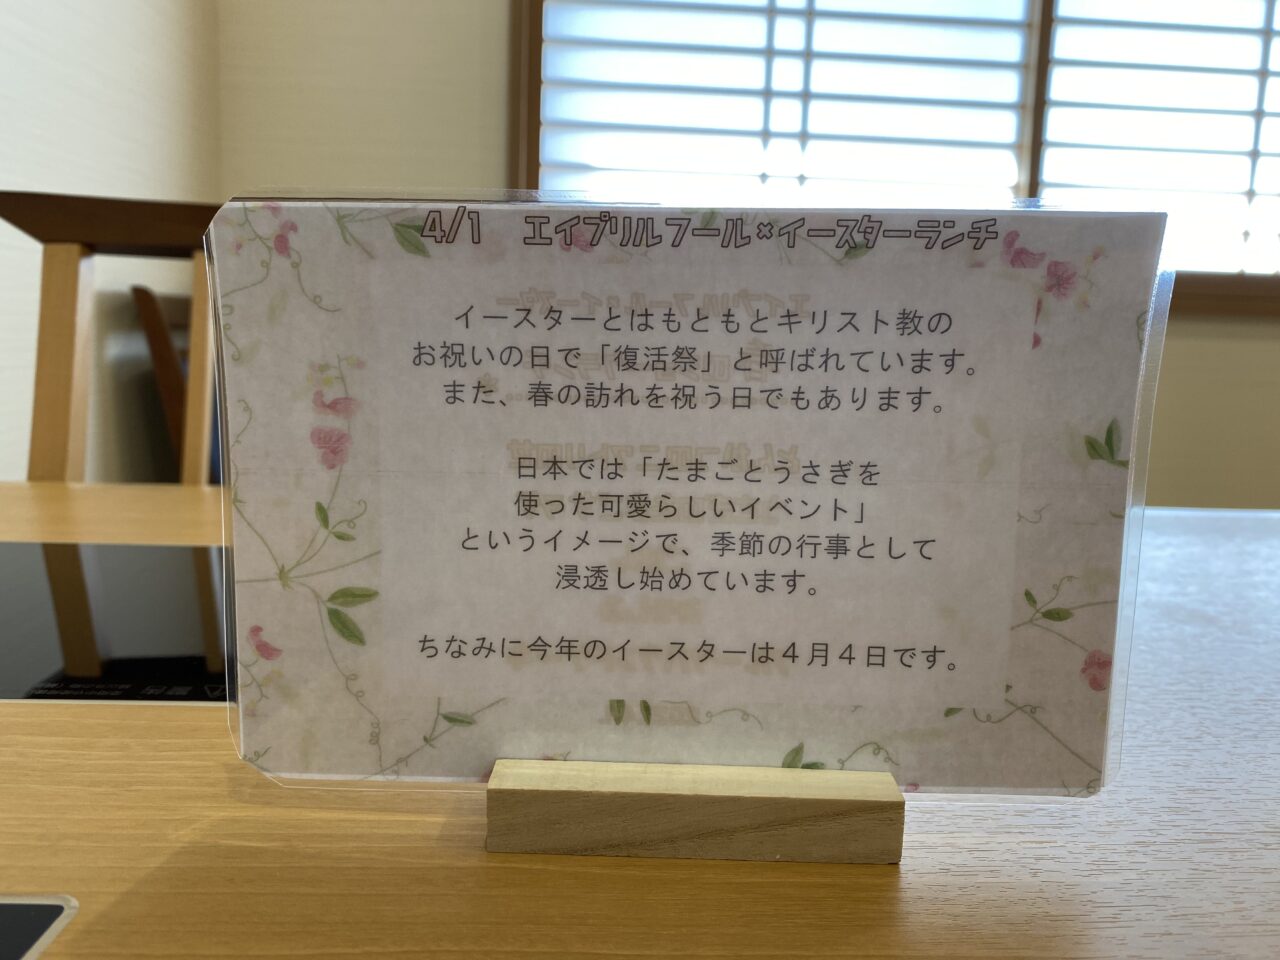 4/1 エイプリルフール×イースターランチ
イースターとはもともとキリスト教の
お祝いの日で「復活祭」と呼ばれています。
また、春の訪れを祝う日でもあります。
日本では「たまごとうさぎを
使った可愛らしいイベント」
というイメージで、季節の行事として
浸透し始めています。
ちなみに今年のイースターは４月４日です。